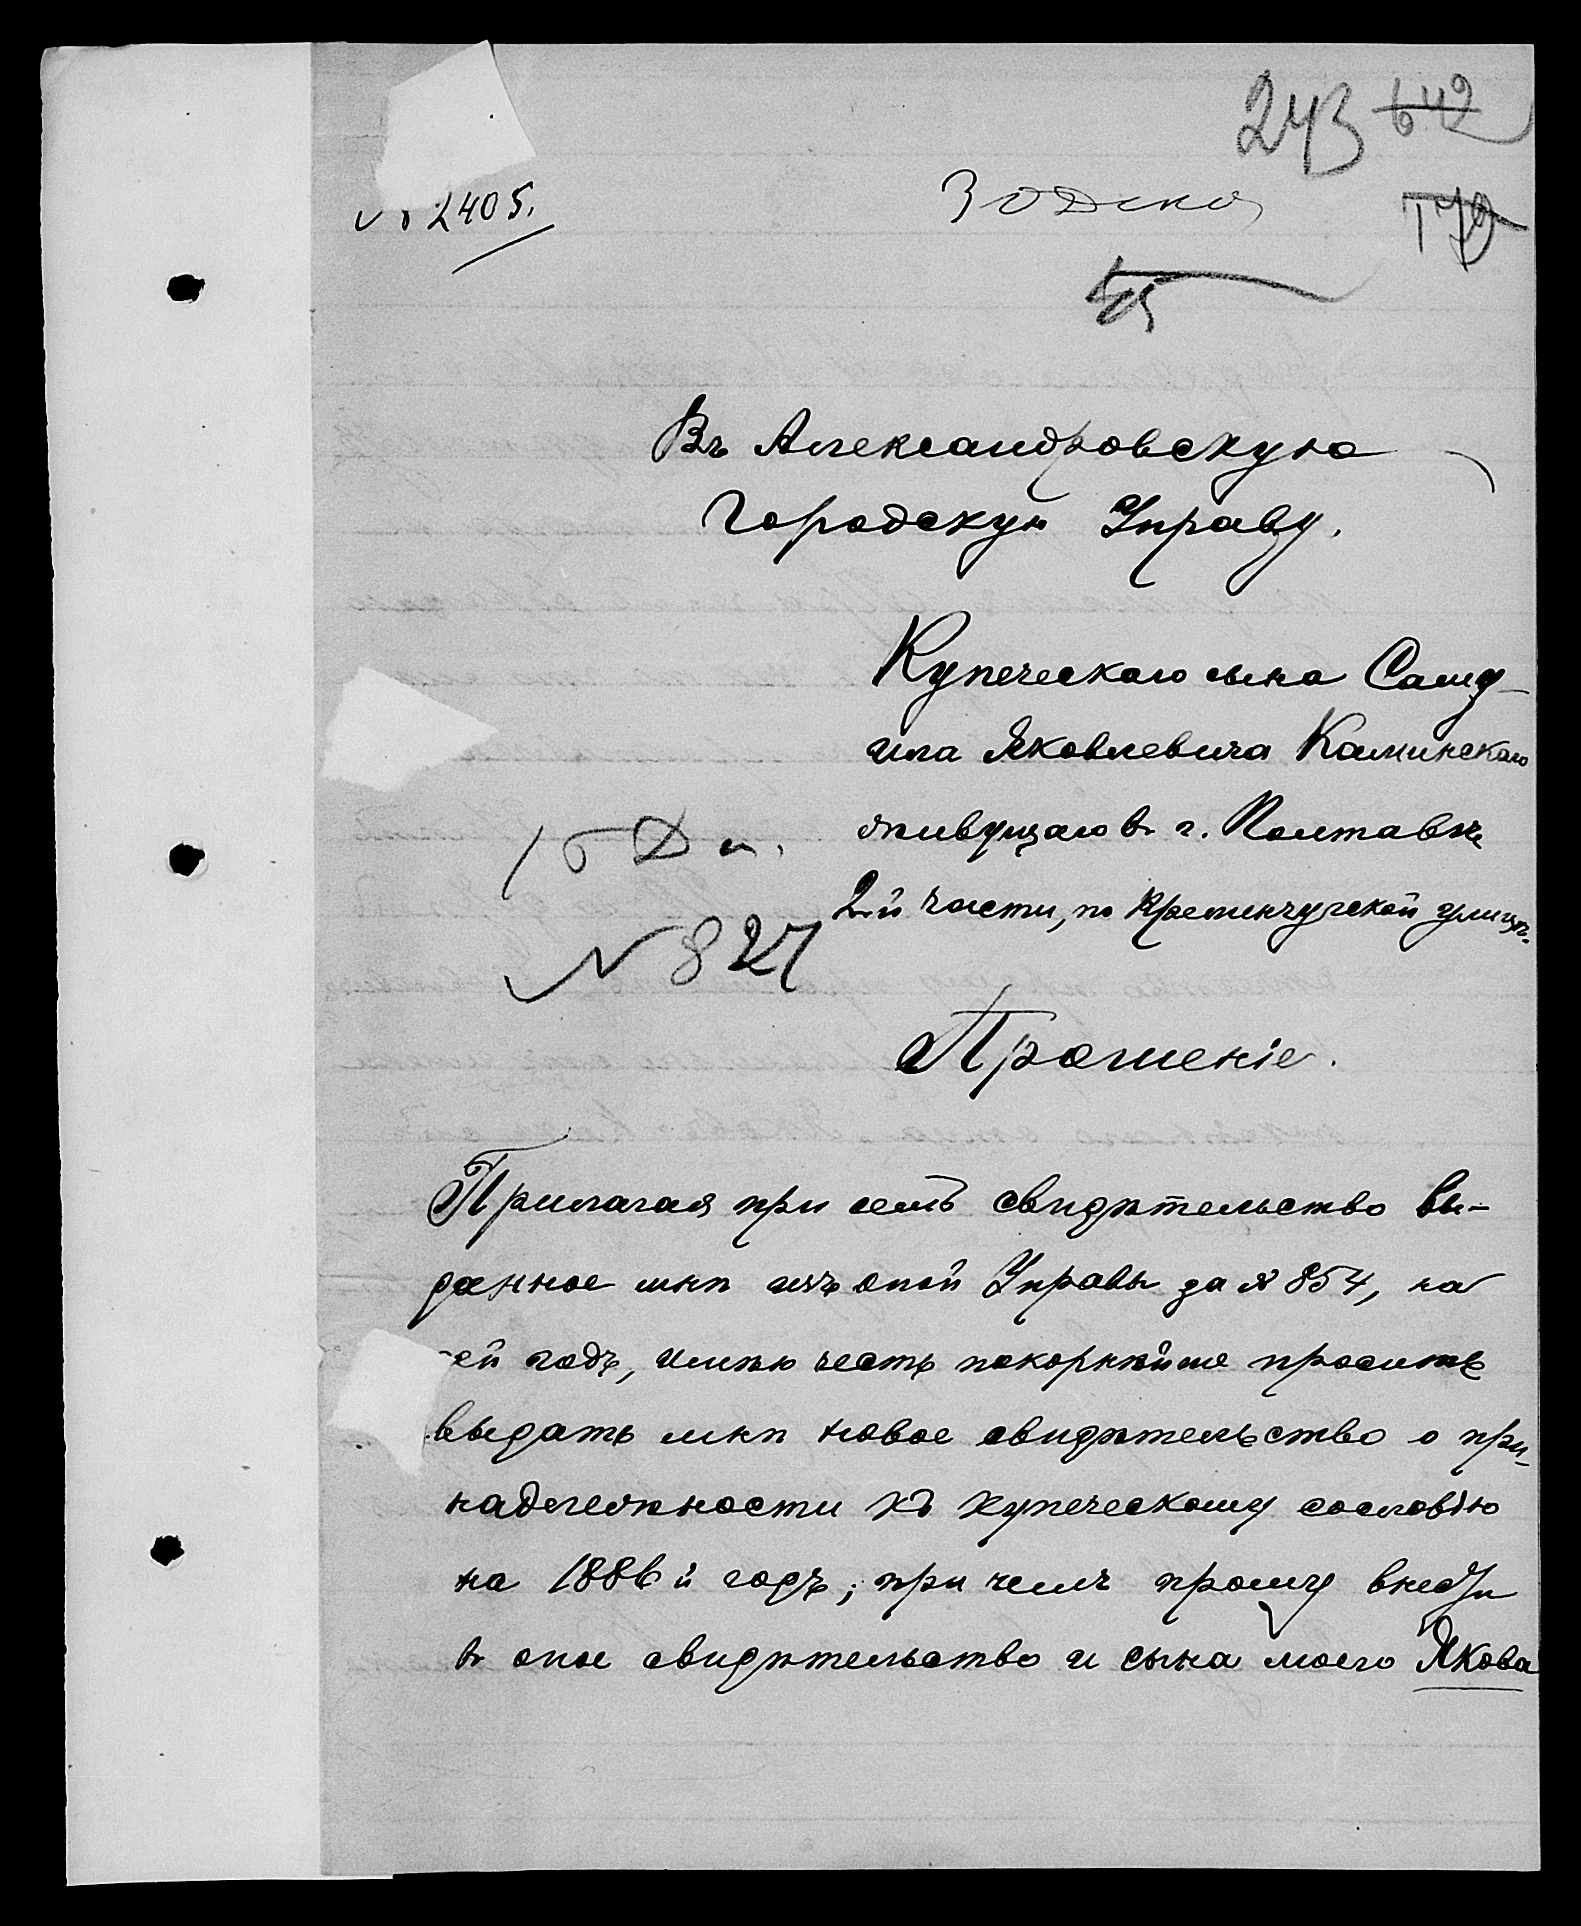 243 642
№ 2405.
3 Дека
179
45
Въ Александровскую
Городскую Управу.
Купеческаго сына Саму-
ила Яковлевича Каминскаго
живущаго въ г. Полтавѣ
2й части, по Кременчугской улицѣ.
15 Дк.
№ 827
Прошеніе.
Прилагая при семъ свидѣтельство вы-
данное мнѣ изъ оной Управы за № 854, на
сей годъ, имѣю честь покорнѣйше просить
выдать мнѣ новое свидѣтельство о при-
надлежности къ купеческому сословію
на 1886й годъ; при чемъ прошу внести
въ оное свидѣтельство и сына моего Якова